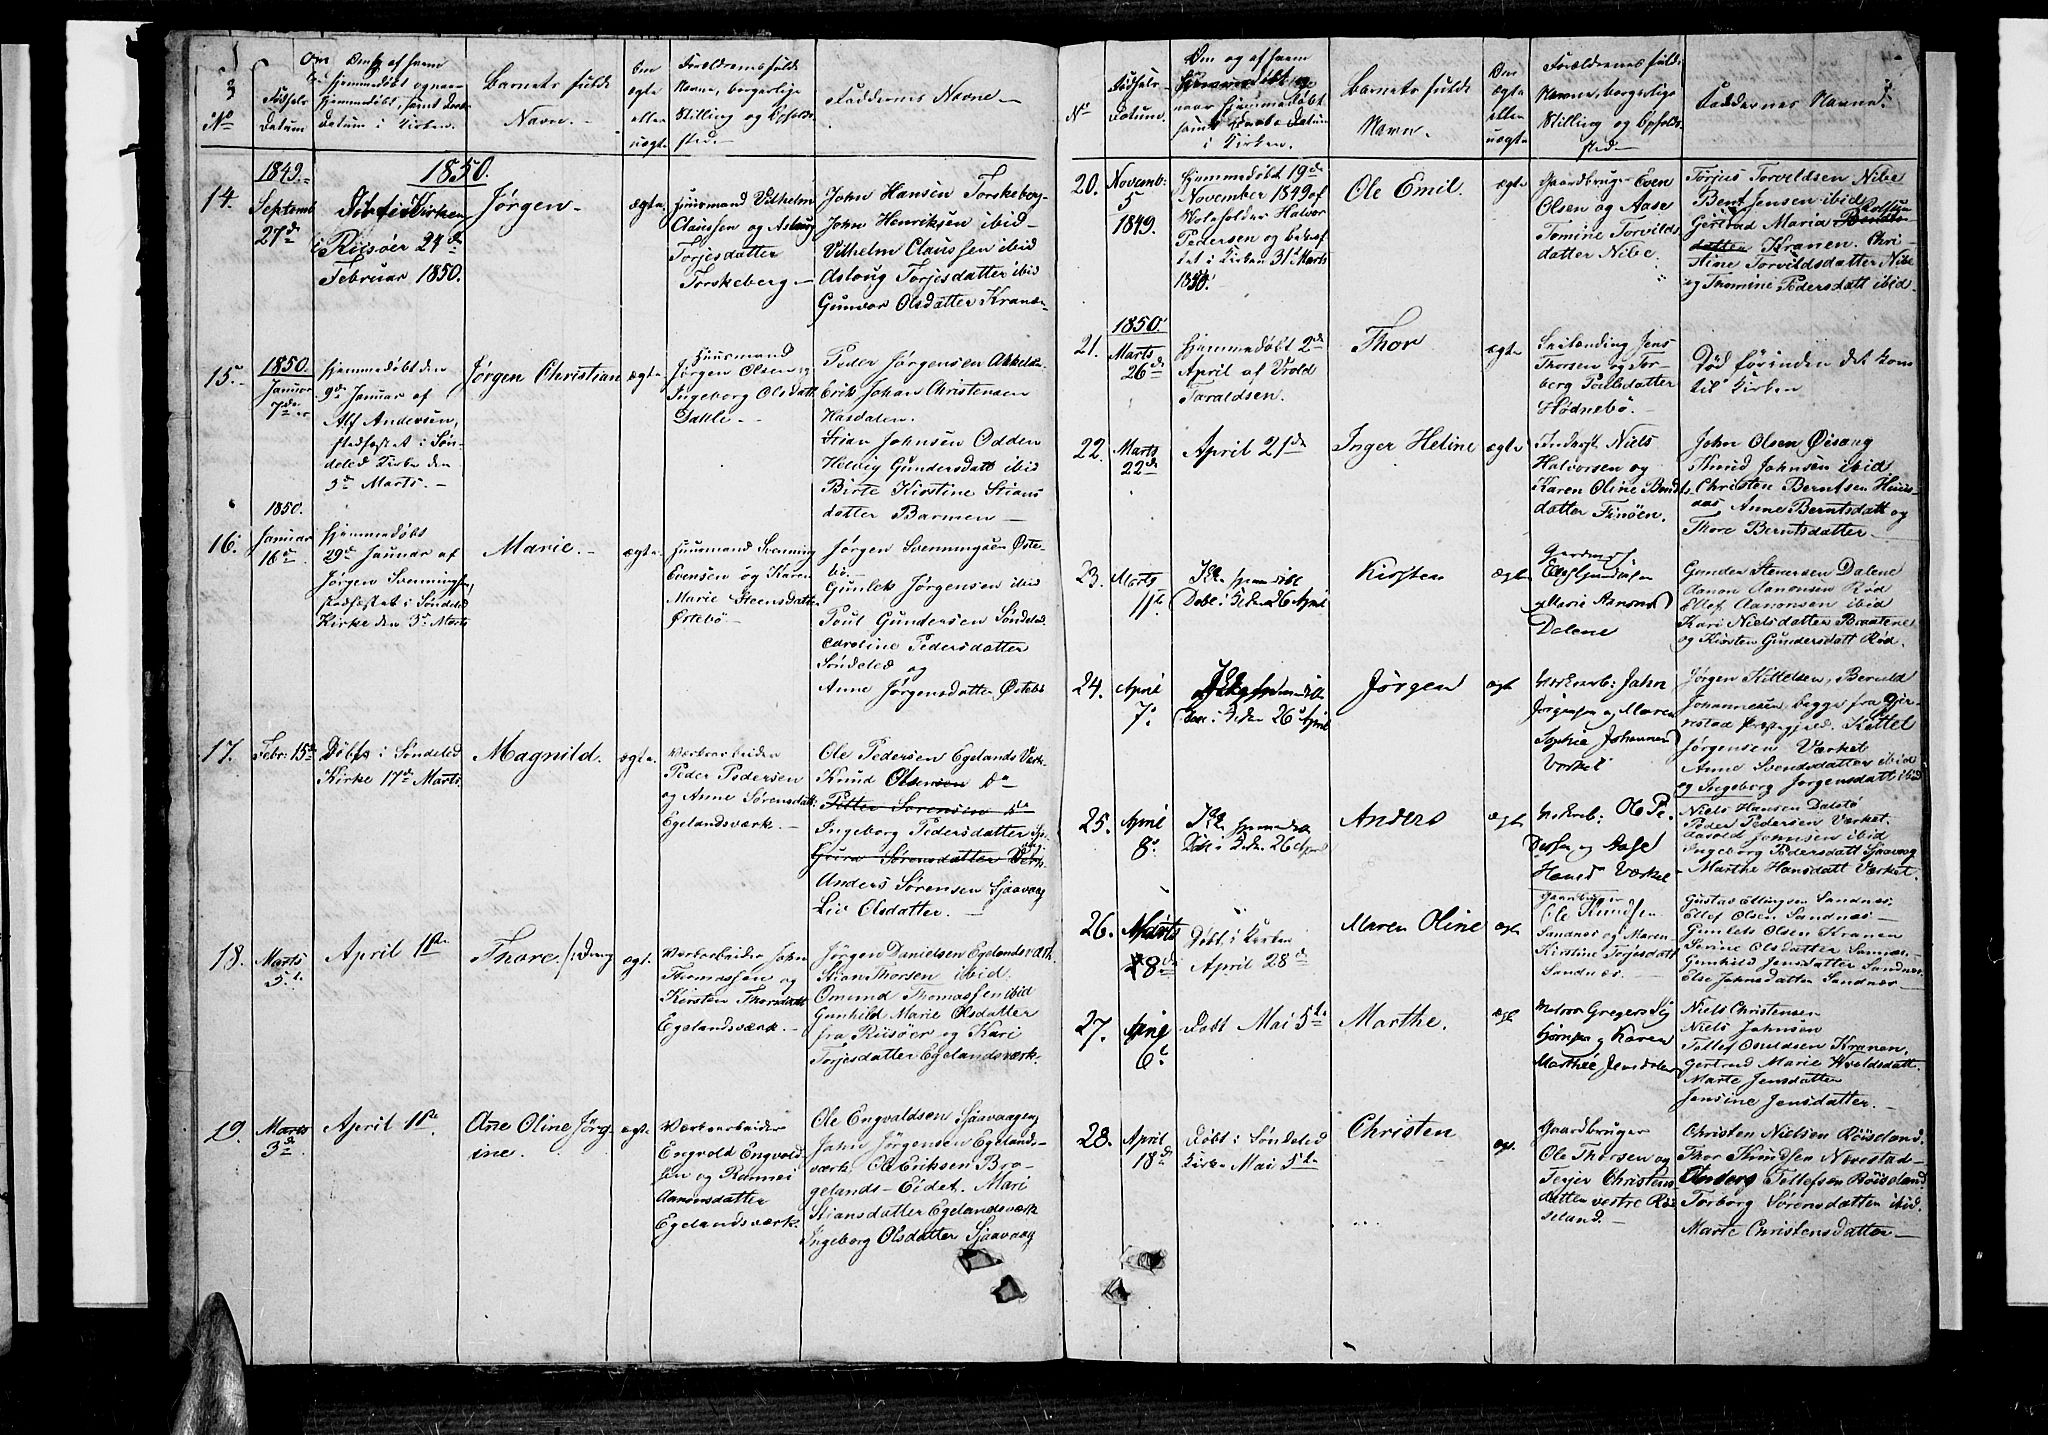 3
No
Fødsels
Datum
Om Døbt af hvem
hjemmedøbt og naar
hjemmedøbt, samt Daabs
Datum i Kirken.
Barnets fulde
Navn.
Om
ægte
eller
uægte
Forældrenes fulde
Navne, borgerlige
Stilling og Opholds-
sted.
Faddernes Navne
1849.
1850.
14.
Septemb
27de
Døbt i Kirken
i Riisøer 24de
Februar 1850.
Jørgen
ægte
Huusmand Vilhelm
Claussen og Aslaug
Torjesdatter
Torskeberg
John Hansen Torskeberg
John Henriksen ibid
Vilhelm Claussen ibid
Aslaug Torjesdatter ibid
Gunvor Olsdatter Kranen
15.
1850.
Januar
7de
Hjemmedøbt den
9de Januar af
Alf Andersen,
stadfæstet i Søn-
deled Kirke den
3de Marts.
Jørgen Christian
ægte
Huusmand
Jørgen Olsen og
Ingeborg Olsdatt
Dahle
Peder Jørgensen
Erik Johan Christensen
Hasdalen.
Stian Johnsen Odden
Helvig Gundersdatt ibid
Birte Kirstine Stians
datter Barmen
1850.
16.
Januar
16de
Hjemmedøbt
29de Januar af
Jørgen Svenningsen,
stadfæstet i Søndeled
Kirke den 3de Marts
Marie.
ægte.
Huusmand Svenning
Evensen og Karen
Marie Steensdatter
Østebø
Jørgen Svenningsen Øste-
bø.
Gumlek Jørgensen ibid
Poul Gundersen Søndeled
Caroline Pedersdatter
Søndeled og
Anne Jørgensdatter Østebø
17.
Febr: 15de
Døbt i Søndeled
Kirke 17de Marts.
Magnild.
ægte.
Værksarbeider
Peder Pedersen
og Anne Sørensdatt:
Egelandsværk.
Ole Pedersen Egelands Værk
Knud Olsensen do
Petter Sørensen do
Ingeborg Pedersdatter
Guro Sørensdatter
Anders Sørensen Sjaavaag
Liv Olsdatter.
18.
Marts
5te
April 1ste
Thore.
ægt.
Værksarbeider John
Thomassen og
Kirsten Thorsdatt
Egelandsværk.
Jørgen Danielsen Egelandsværk.
Stian Thorsen ibid.
Omund Thomassen ibid
Gunhild Marie Olsdatter
fra Riisøer og Kari
Torjesdatter Egelandsværk.
19.
Marts
3de
April 1ste.
Ane Oline Jørg-
ine.
ægt.
Værksarbeider
Engvold Engvold-
sen og Rannei
Aanonsdatter
Egelandsværk.
Ole Engvaldsen Sjaavaagen
John Jørgensen Egelands-
værk. Ole Eriksen Bro-
gelands-Eidet. Mari
Stiansdatter Egelandsværk
Ingeborg Olsdatter Sjaavaag
No
Fødsels-
Datum.
Om og af hvem
Hjemmedøbt og
naar hjemmedøbt,
samt Daabs Datum
i Kirken.
Barnets fulde
Navn.
Om
ægte
eller
uægte
Forældrenes fulde
Navne, borgerlige
Stilling og Opholds-
sted.
Faddernes Navne.
20.
Novemb:
5
1849.
Hjemmedøbt 19de
November 1849 af
Skoleholder Halvor
Pedersen og bekræf
tet i Kirken 31te Marts
1850.
Ole Emil.
ægte
Gaardbruger Even
Olsen og Aase
Tomine Torvilds
datter Nibe.
Torjus Torveldsen Nibe
Bent Jensen ibid
Gertrud Maria
datter Kranen. Chri
stine Torvildsdatter Nibe
og Thomine Pedersdatt ibid
21.
1850.
Marts
26de
Hjemmedøbt 2de
April af Vrold
Taraldsen.
Thor
ægte
Jens
Thorsen og Tor-
berg Poulsdatter
Hødnebø.
Død førinden det kom
til Kirken
22.
Marts
22de
April 21de
Inger Heline
ægte
Niels
Halvorsen og
Karen Oline Bendts
datter Finøen.
John Olsen Øisang
Thorid Johnsen ibid
Christen Berntsen Huus-
aas Anne Berntsdatt og
Thore Berntsdatter
23.
Marts
11te
Døbt i Kirken 26 April
Kirsten
ægte
Gunders
og Marie Aanons
Dalene
Gunder Stenersen Dalene
Aanon Aanonsen Rød
Ellef Aanonsen ibid
Kari Nielsdatter Braatene
og Kirsten Gundersdatt Rød.
24.
April
7de
Jørgen
ægte
Værksarb: John
Jørgensen og Maren
Sophie Johannes
Værket
Jørgen Kittelsen, Beruld
Johannesen, begge fra Gjer-
restad Præstegjeld. Kittel
Jørgensen Værket
Anne Svendsdatter ibid
og Ingeborg Jørgensdatt ibid
25.
April
8de
Anders
ægte
Værksarb: Ole Pe-
dersen og Aase
Hansd Værket
Niels Hansen Dalstø
Peder Pedersen Værket.
Aarold Johnsen ibid
Ingeborg Pedersdatt Sjaavaag
Marthe Hansdatt Værket.
26.
Marts
28de
Døbt i Kirken
April 28de
Maren Oline
ægte
Gaardbruger
Ole Knudsen
Sandnæs og Maren
Kirstine Torjusdatt
Sandnæs.
Gustav Ellingsen Sandnæs
Ellef Olsen Sandnæs
Gumlek Olsen Kranen
Serine Olsdatter Sannæs.
Gunhild Jensdatter Sandnæs.
Else Johnsdatter Sandnæs
27.
April
6te
Døbt Mai 5te
Marthe.
ægt
Matros Gregers
Bjørnsen og Karen
Marthe Jensdatter
Niels Christensen
Niels Johnsen
Tellef Osuldsen Kranen.
Gertrud Marie Wroldsdatt.
Marte Jensdatter
Jensine Jensdatter.
28.
April
18de
Døbt i Søndeled
Kirke Mai 5te
Christen
ægt.
Gaardbruger
Ole Thorsen og
Terjer Christens
datter vestre Røi
seland.
Christen Nielsen Røiseland.
Thor Knudsen Navestad
Anders Tellefsen Røiseland.
Torborg Sørensdatter ibid.
Marte Christensdatter